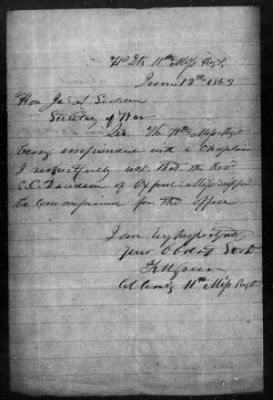 Hd Qts 11th Miss Regt
June 13th 1863
Hon Jas A Seddon
Secretary of War
Sir The 11th Miss Regt
being unprovided with a Chaplain
I respectfully ask that the Revd
of Oxford Miss
be commissioned for the office
I am Very Respectfully
Your Obdt Servt
F M Green
Col Comdg 11th Miss Regt